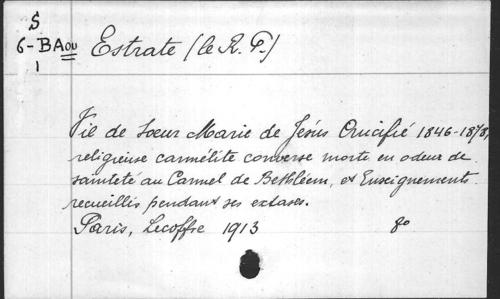 S
6-BAou Estrate (le R. P.)
1
Vie de Soeur Marie de Jésus Crucifié 1846-1878,
religieuse carmélite converse morte en odeur de
sainteté au Carmel de Bethléem, et Enseignements
recueillis pendant ses extases.
Paris, Lecoffre 1913 8o